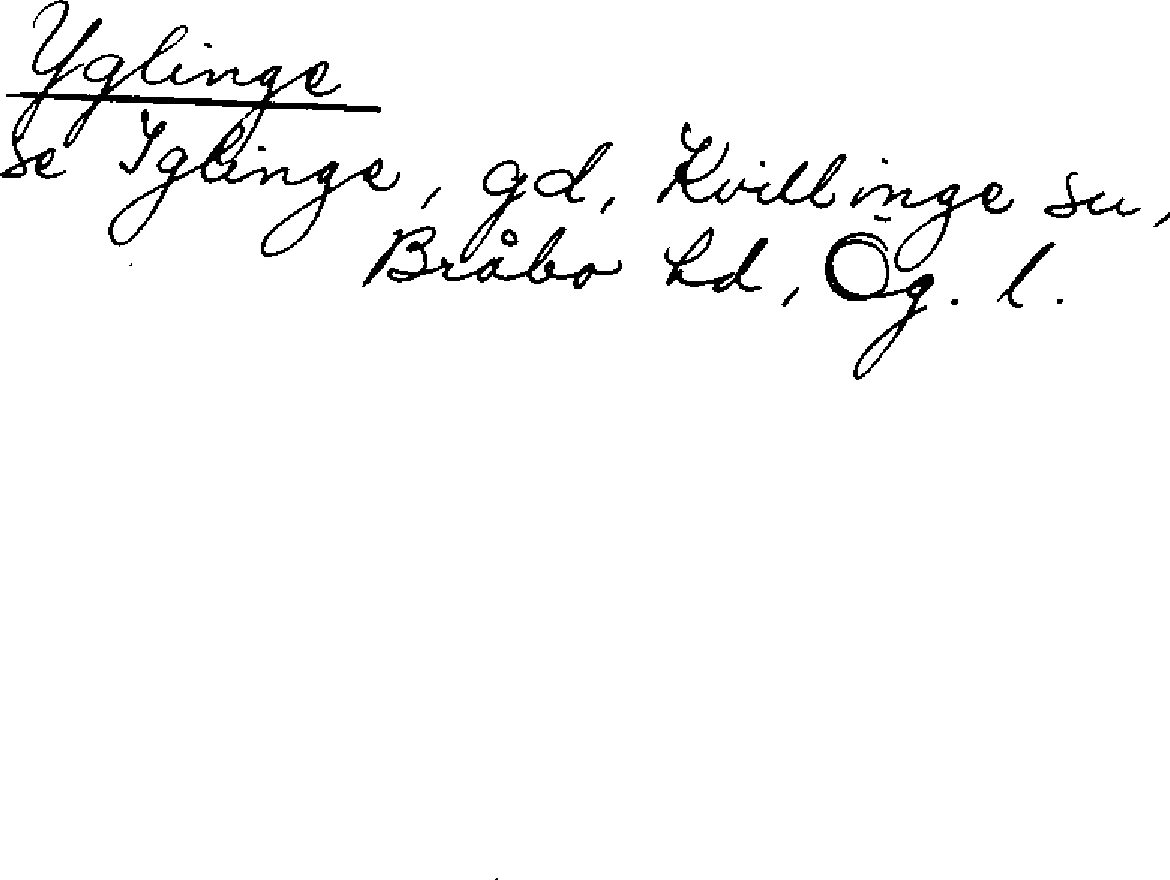 Yglinge
se Iglinge, gd, Kvillinge sn,
Bråbo hd, Ög. l.